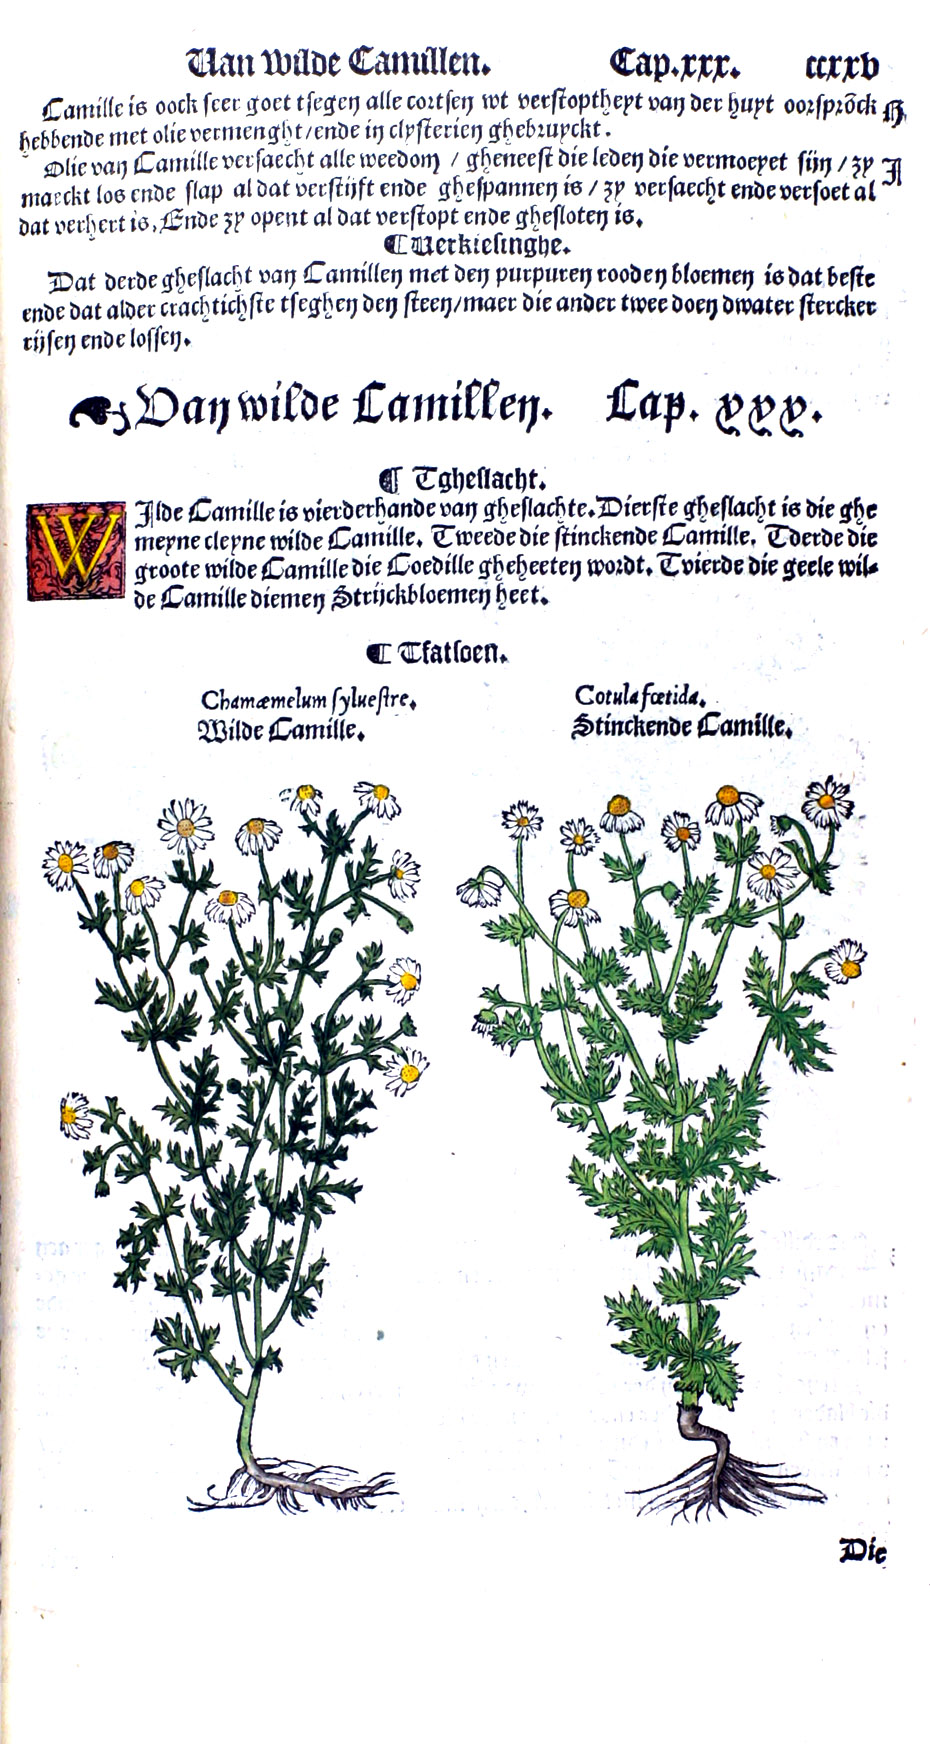 Van wilde Camillen. Cap.xxx. ccxxv
Camille is oock seer goet tsegen alle cortsen wt verstoptheyt van der huyt oorsprõck H
hebbende met olie vermenght/ende in clysterien ghebruyckt.
Olie van Camille versaecht alle weedom / gheneest die leden die vermoeyet sijn / zy I
maeckt los ende slap al dat verstijft ende ghespannen is / zy versaecht ende versoet al
dat verhert is, Ende zy opent al dat verstopt ende ghesloten is.
¶Verkiesinghe.
Dat derde gheslacht van Camillen met den purpuren rooden bloemen is dat beste
ende dat alder crachtichste tseghen den steen/maer die ander twee doen dwater stercker
rijsen ende lossen.
☙Van wilde Camillen. Cap. xxx.
¶ Tgheslacht.
WIlde Camille is vierderhande van gheslachte. Dierste gheslacht is die ghe
meyne cleyne wilde Camille. Tweede die stinckende Camille. Tderde die
groote wilde Camille die Coedille gheheeten wordt. Tvierde die geele wil-
de Camille diemen Strijckbloemen heet.
¶ Tfatsoen.
Chamæmelum sylvestre.
Wilde Camille.
Cotula fœtida.
Stinckende Camille.
Die